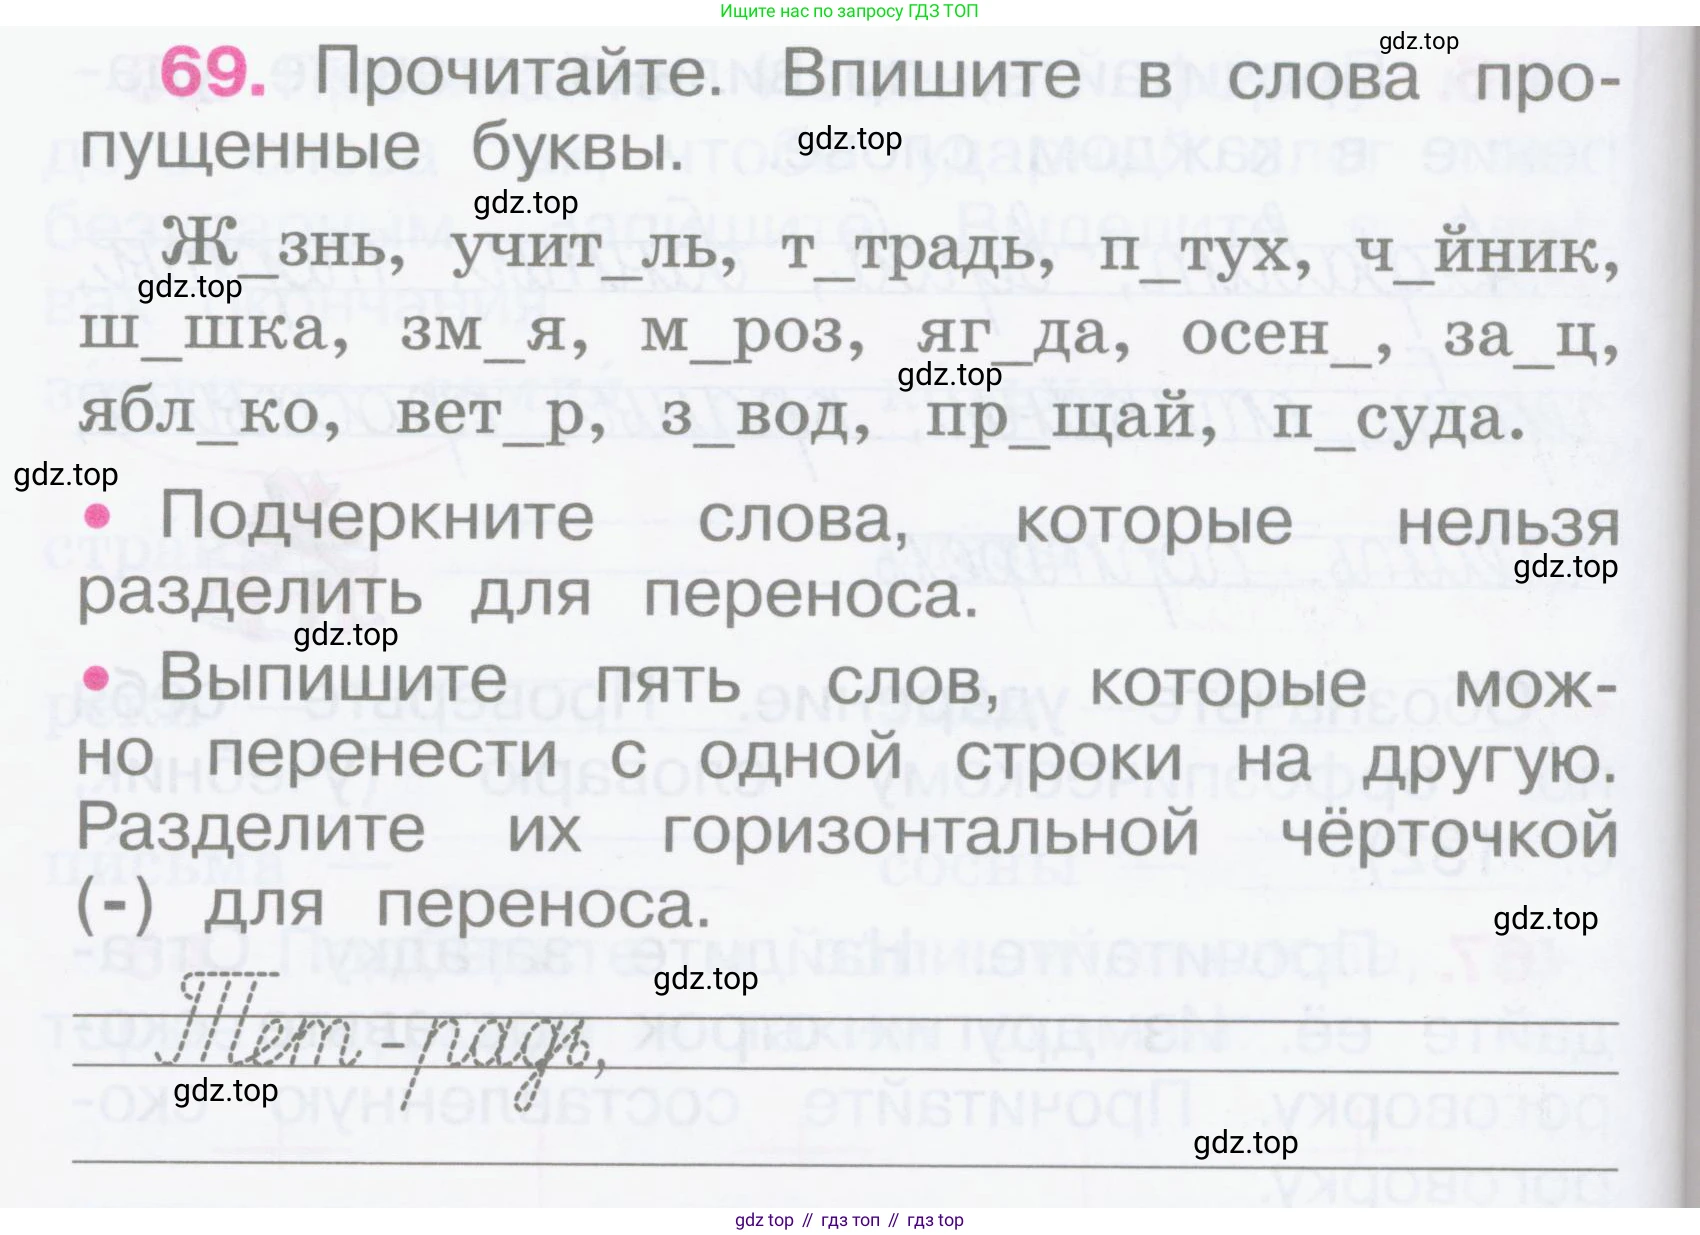 Ищите нас по запросу ГДЗ ТОП
gdz.top
69. Прочитайте. Впишите в слова про-
пущенные буквы.
gdz.top
gdz.top
Ж_знь, учит_ль, т_традь, п_тух, ч_йник,
gdz.top
ш_шка, зм_я, м_роз, яг_да, осен_, за_ц,
gdz.top
ябл_ко, вет_р, з_вод, пр_щай, п_суда.
gdz.top
• Подчеркните слова, которые нельзя
gdz.top
разделить для переноса.
gdz.top
• Выпишите пять слов, которые мож-
но перенести с одной строки на другую.
Разделите их горизонтальной чёрточкой
(-) для переноса.
gdz.top
gdz.top
Тет радь,
gdz.top
gdz.top
gdz top // гдз топ // гдз top